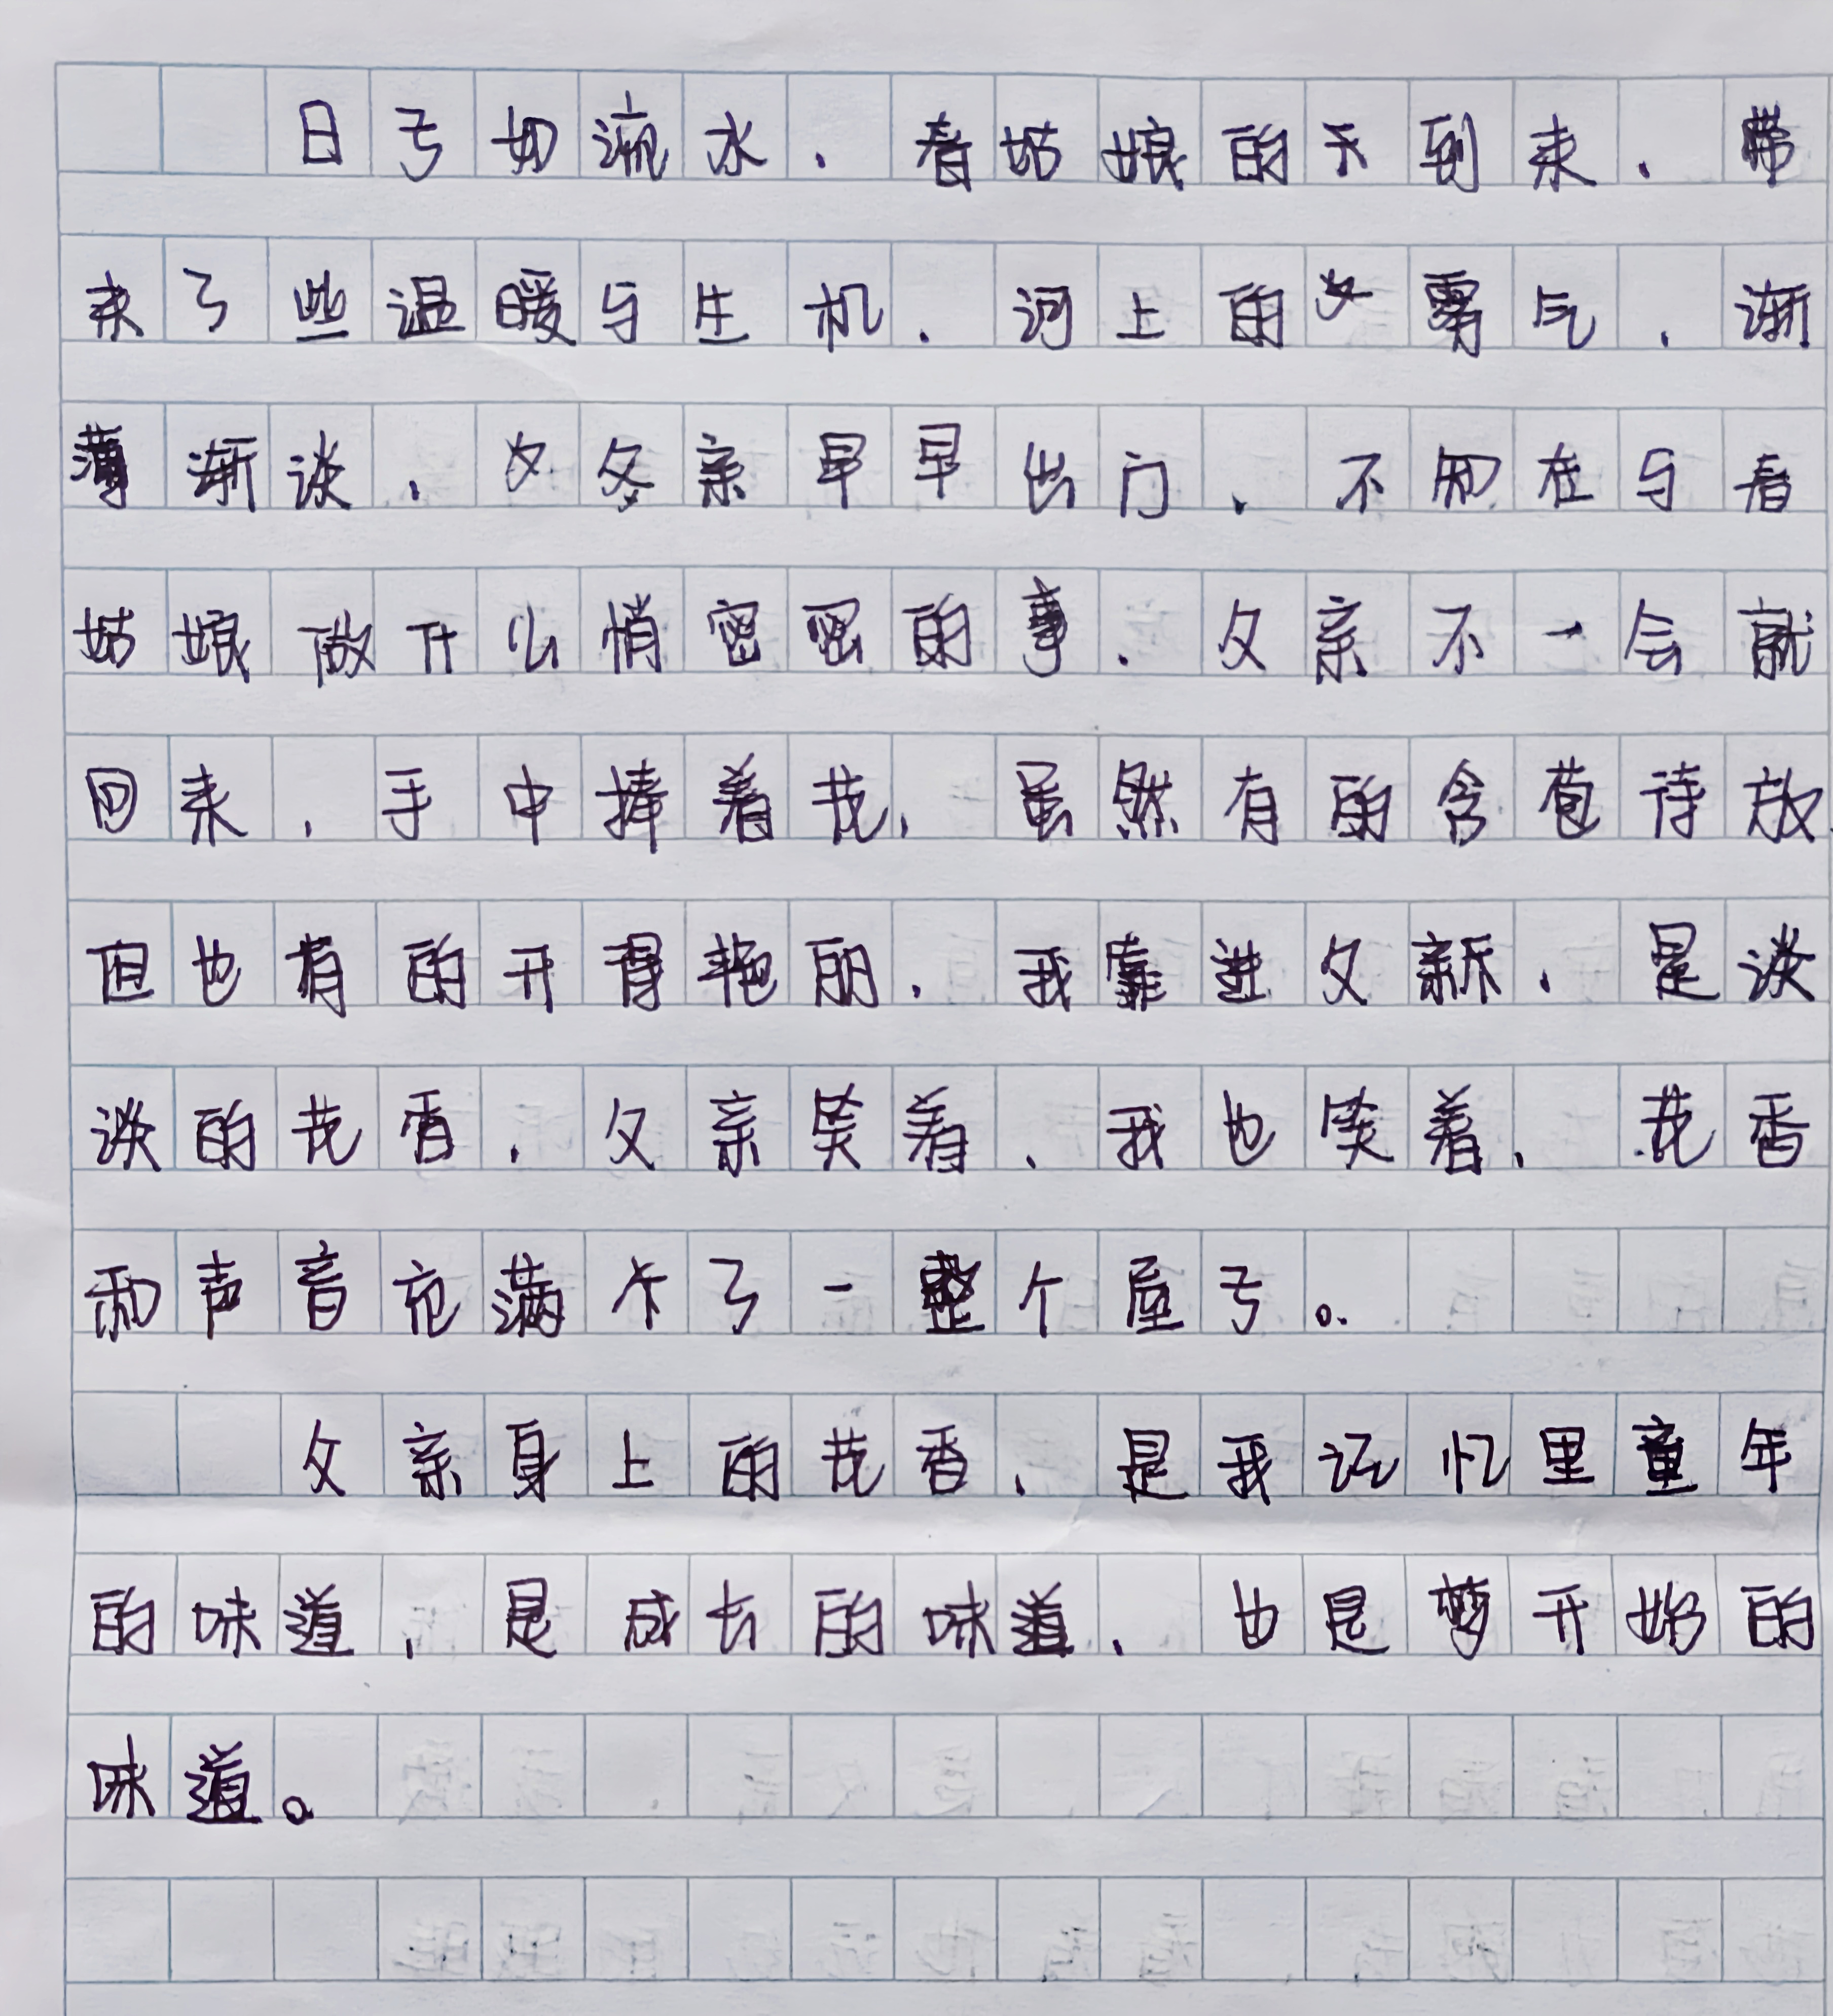 日子如流水，春姑娘的到来，带
来了些温暖与生机，河上的雾气，渐
薄渐谈，父亲早早出门，不知在与春
姑娘做什么悄密密的事，父亲不一会就
回来，手中捧着花，虽然有的含苞待放，
但也有的开得艳丽，我靠进父亲，是淡
淡的花香，父亲笑着，我也笑着，花香
和声音充满了一整个屋子。
父亲身上的花香，是我记忆里童年
的味道，是成长的味道，也是梦开始的
味道。